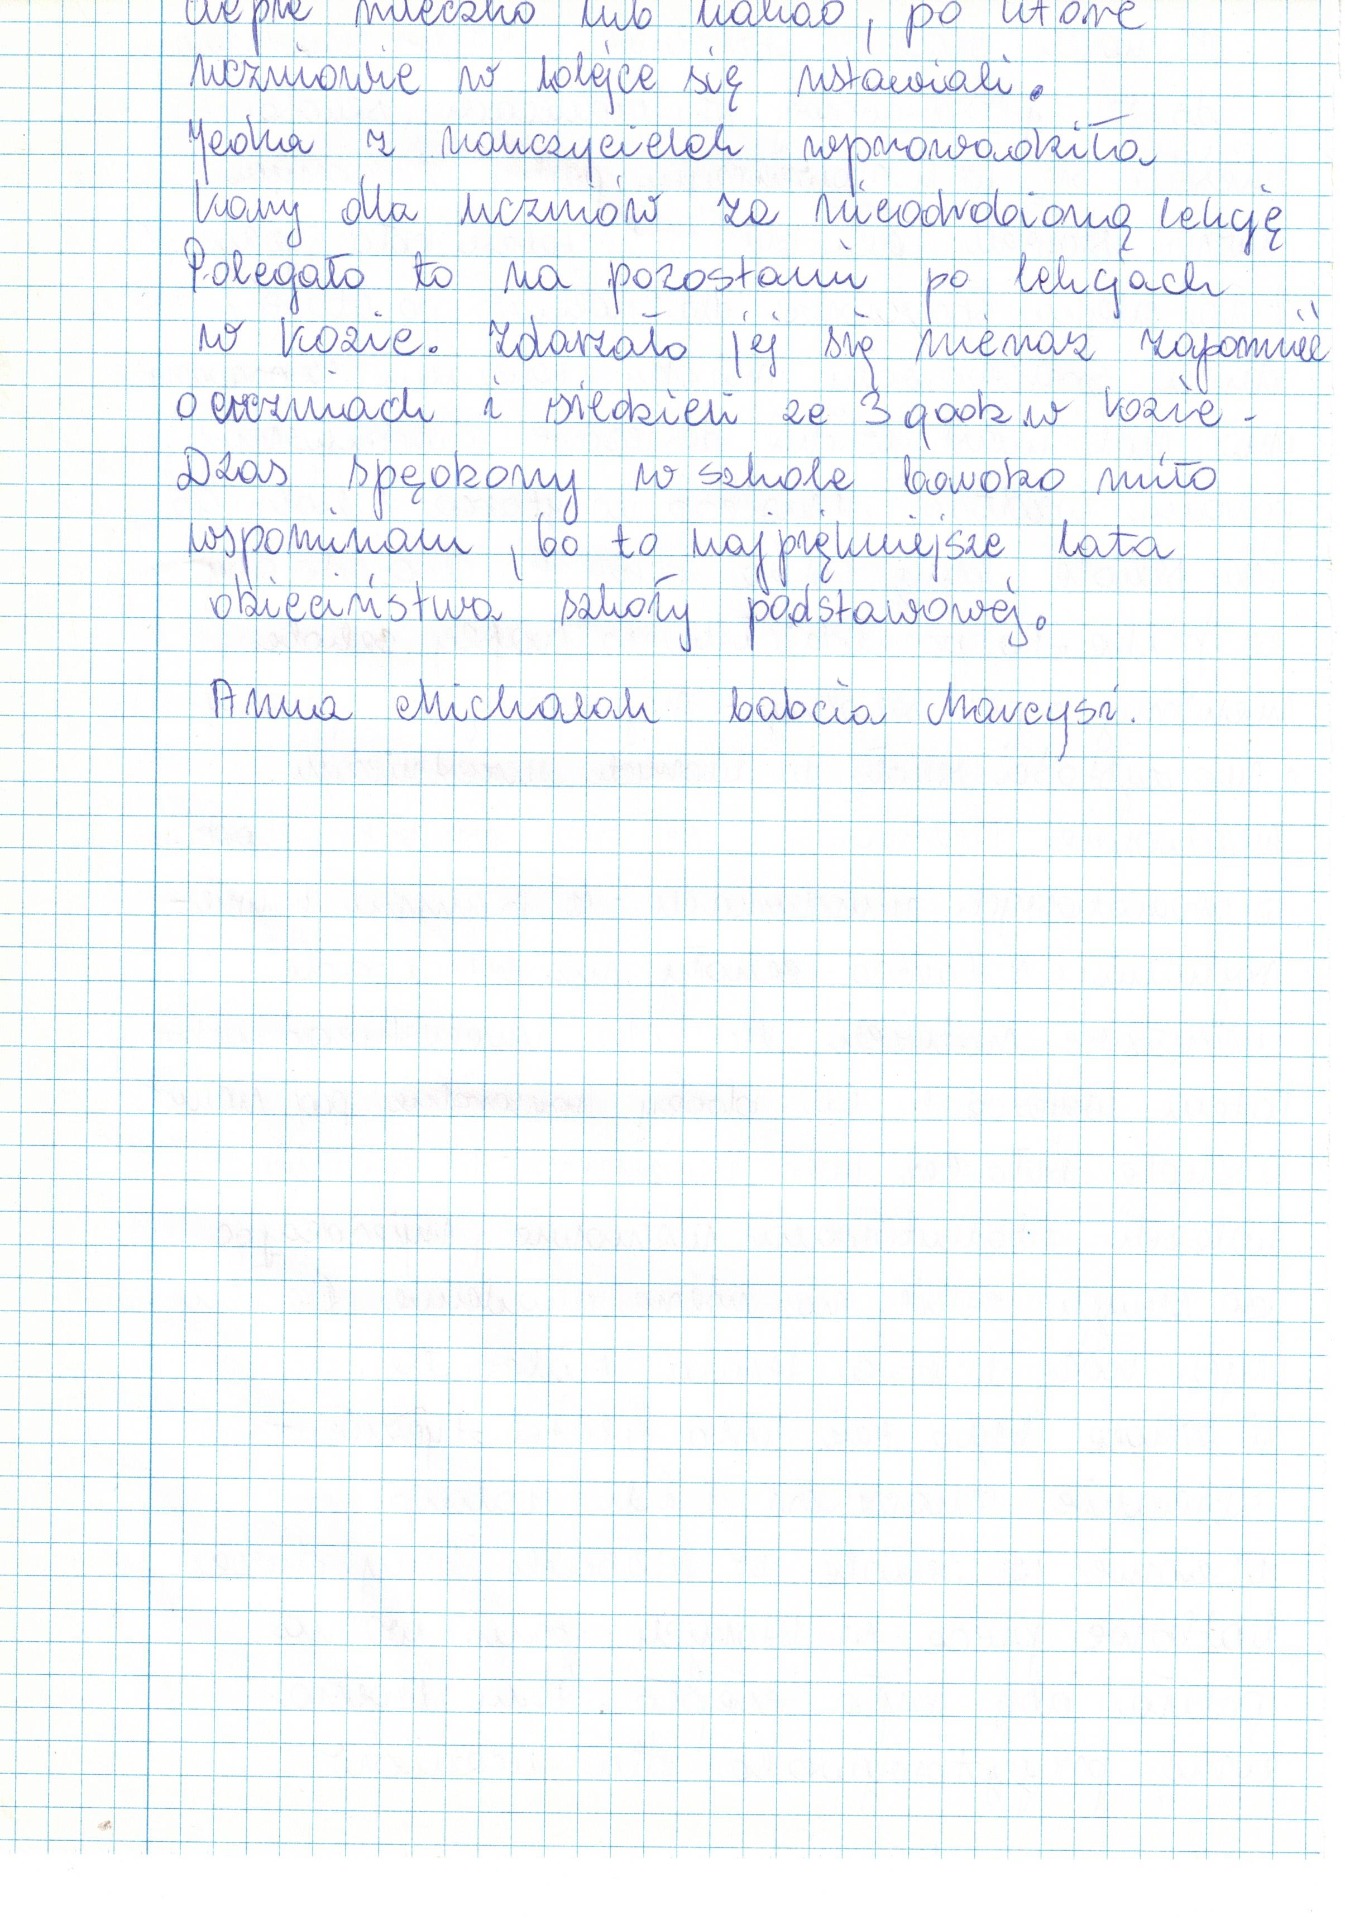 ciepłe mleczko lub kakao, po które
uczniowie w kolejce się ustawiali.
Jedna z nauczycielek wprowadziła
kary dla uczniów za nieodrobioną lekcję
Polegało to na pozostaniu po lekcjach
w kozie. Zdarzało jej się nieraz zapomnieć
o uczniach i siedzieli ze 3 godz. w kozie -
Czas spędzony w szkole bardzo miło
wspominam, bo to najpiękniejsze lata
dzieciństwa szkoły podstawowej.
Anna Michalak babcia Marcysi.